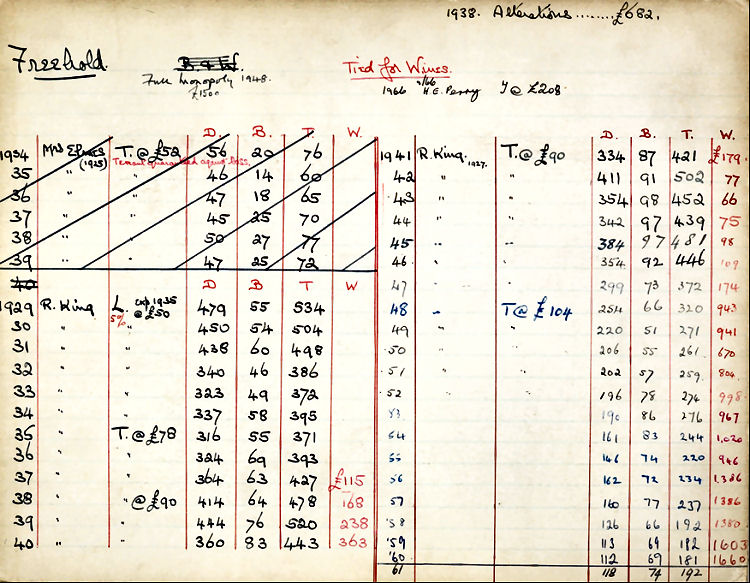 1938. Alterations ........ £682.
Freehold
Full Monopoly 1948.
£1500
Tied for Wines.
1966 H.E. Perry T @ £208
D. B. T. W.
1934 Mrs (1925) T. @ £52 56 20 76
35 " " 46 14 60
36 " " 47 18 65
37 " " 45 25 70
38 " " 50 27 77
39 " " 47 25 72
40
D B T W
1929 R. King L. exp 1935 @ £50 479 55 534
30 " " 450 54 504
31 " " 438 60 498
32 " " 340 46 386
33 " " 323 49 372
34 " " 337 58 395
35 " T. @ £78 316 55 371
36 " " 324 69 393
37 " " 364 63 427 £115
38 " @ £90 414 64 478 168
39 " " 444 76 520 238
40 " " 360 83 443 363
D. B. T. W.
1941 R. King. 1927. T. @ £90 334 87 421 £179
42 " " 411 91 502 77
43 " " 354 98 452 66
44 " " 342 97 439 75
45 " " 384 97 481 98
46 " " 354 92 446 109
47 " " 299 73 372 174
48 " T @ £104 254 66 320 943
49 " " 220 51 271 941
50 " " 206 55 261 670
51 " " 202 57 259 804
52 " " 196 78 274 998
53 190 86 276 967
54 161 83 244 1,020
55 146 74 220 946
56 162 72 234 1,386
57 160 77 237 1386
'58 126 66 192 1380
'59 113 69 182 1603
'60 112 69 181 1660
61 118 74 192